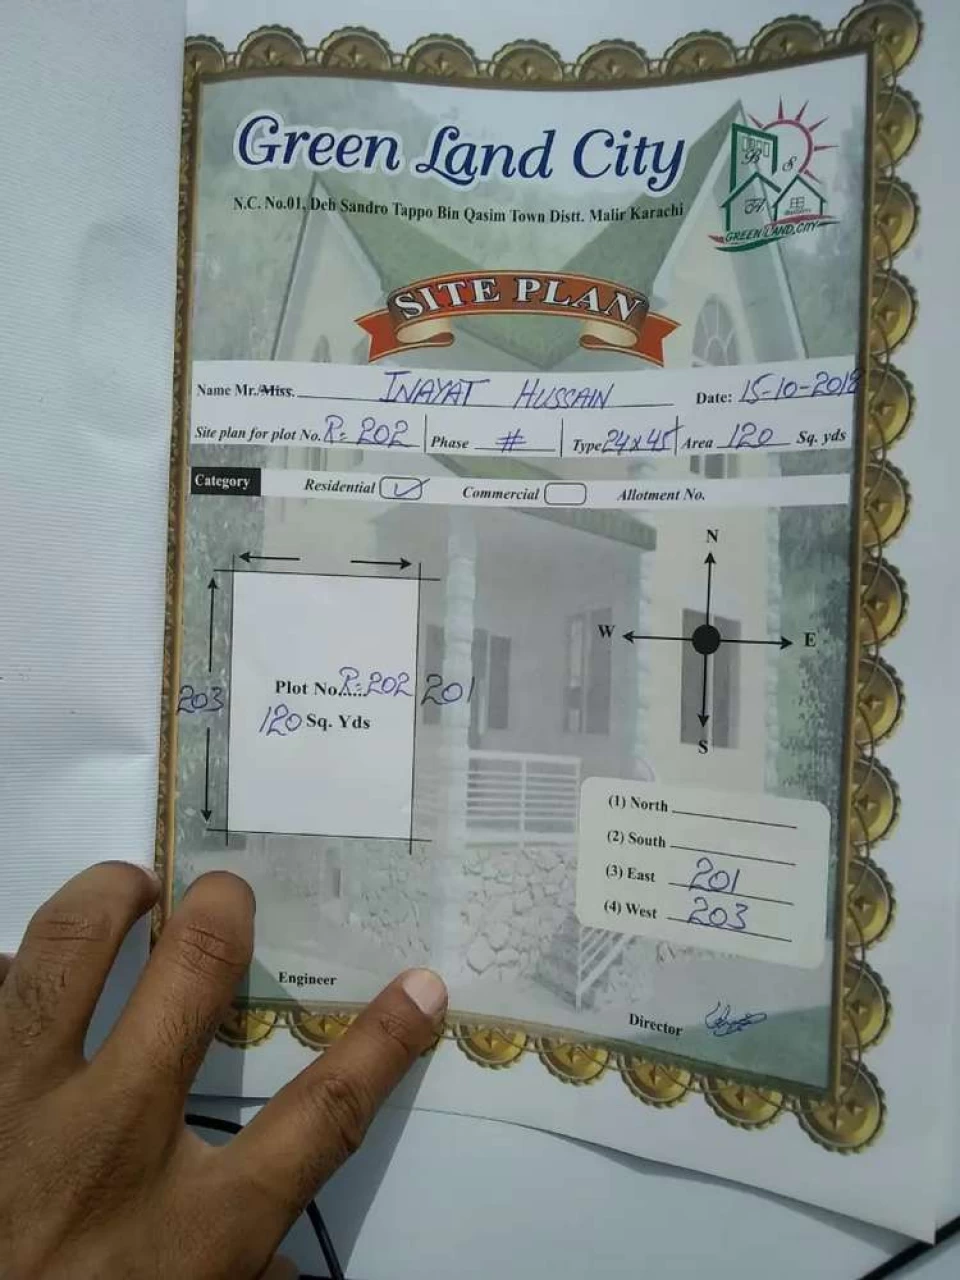 Green Land City
N.C. No.01, Deh Sandro Tappo Bin Qasim Town Distt. Malir Karachi
B S
GREEN LAND CITY
SITE PLAN
Name Mr./Miss. INAYAT HUSSAIN Date: 15-10-2018
Site plan for plot No. R=202 Phase # Type 24x45 Area 120 Sq. yds
Category Residential Commercial Allotment No.
N
W E
S
203 Plot No..... R=202 201
120 Sq. Yds
(1) North
(2) South
(3) East 201
(4) West 203
Engineer
Director